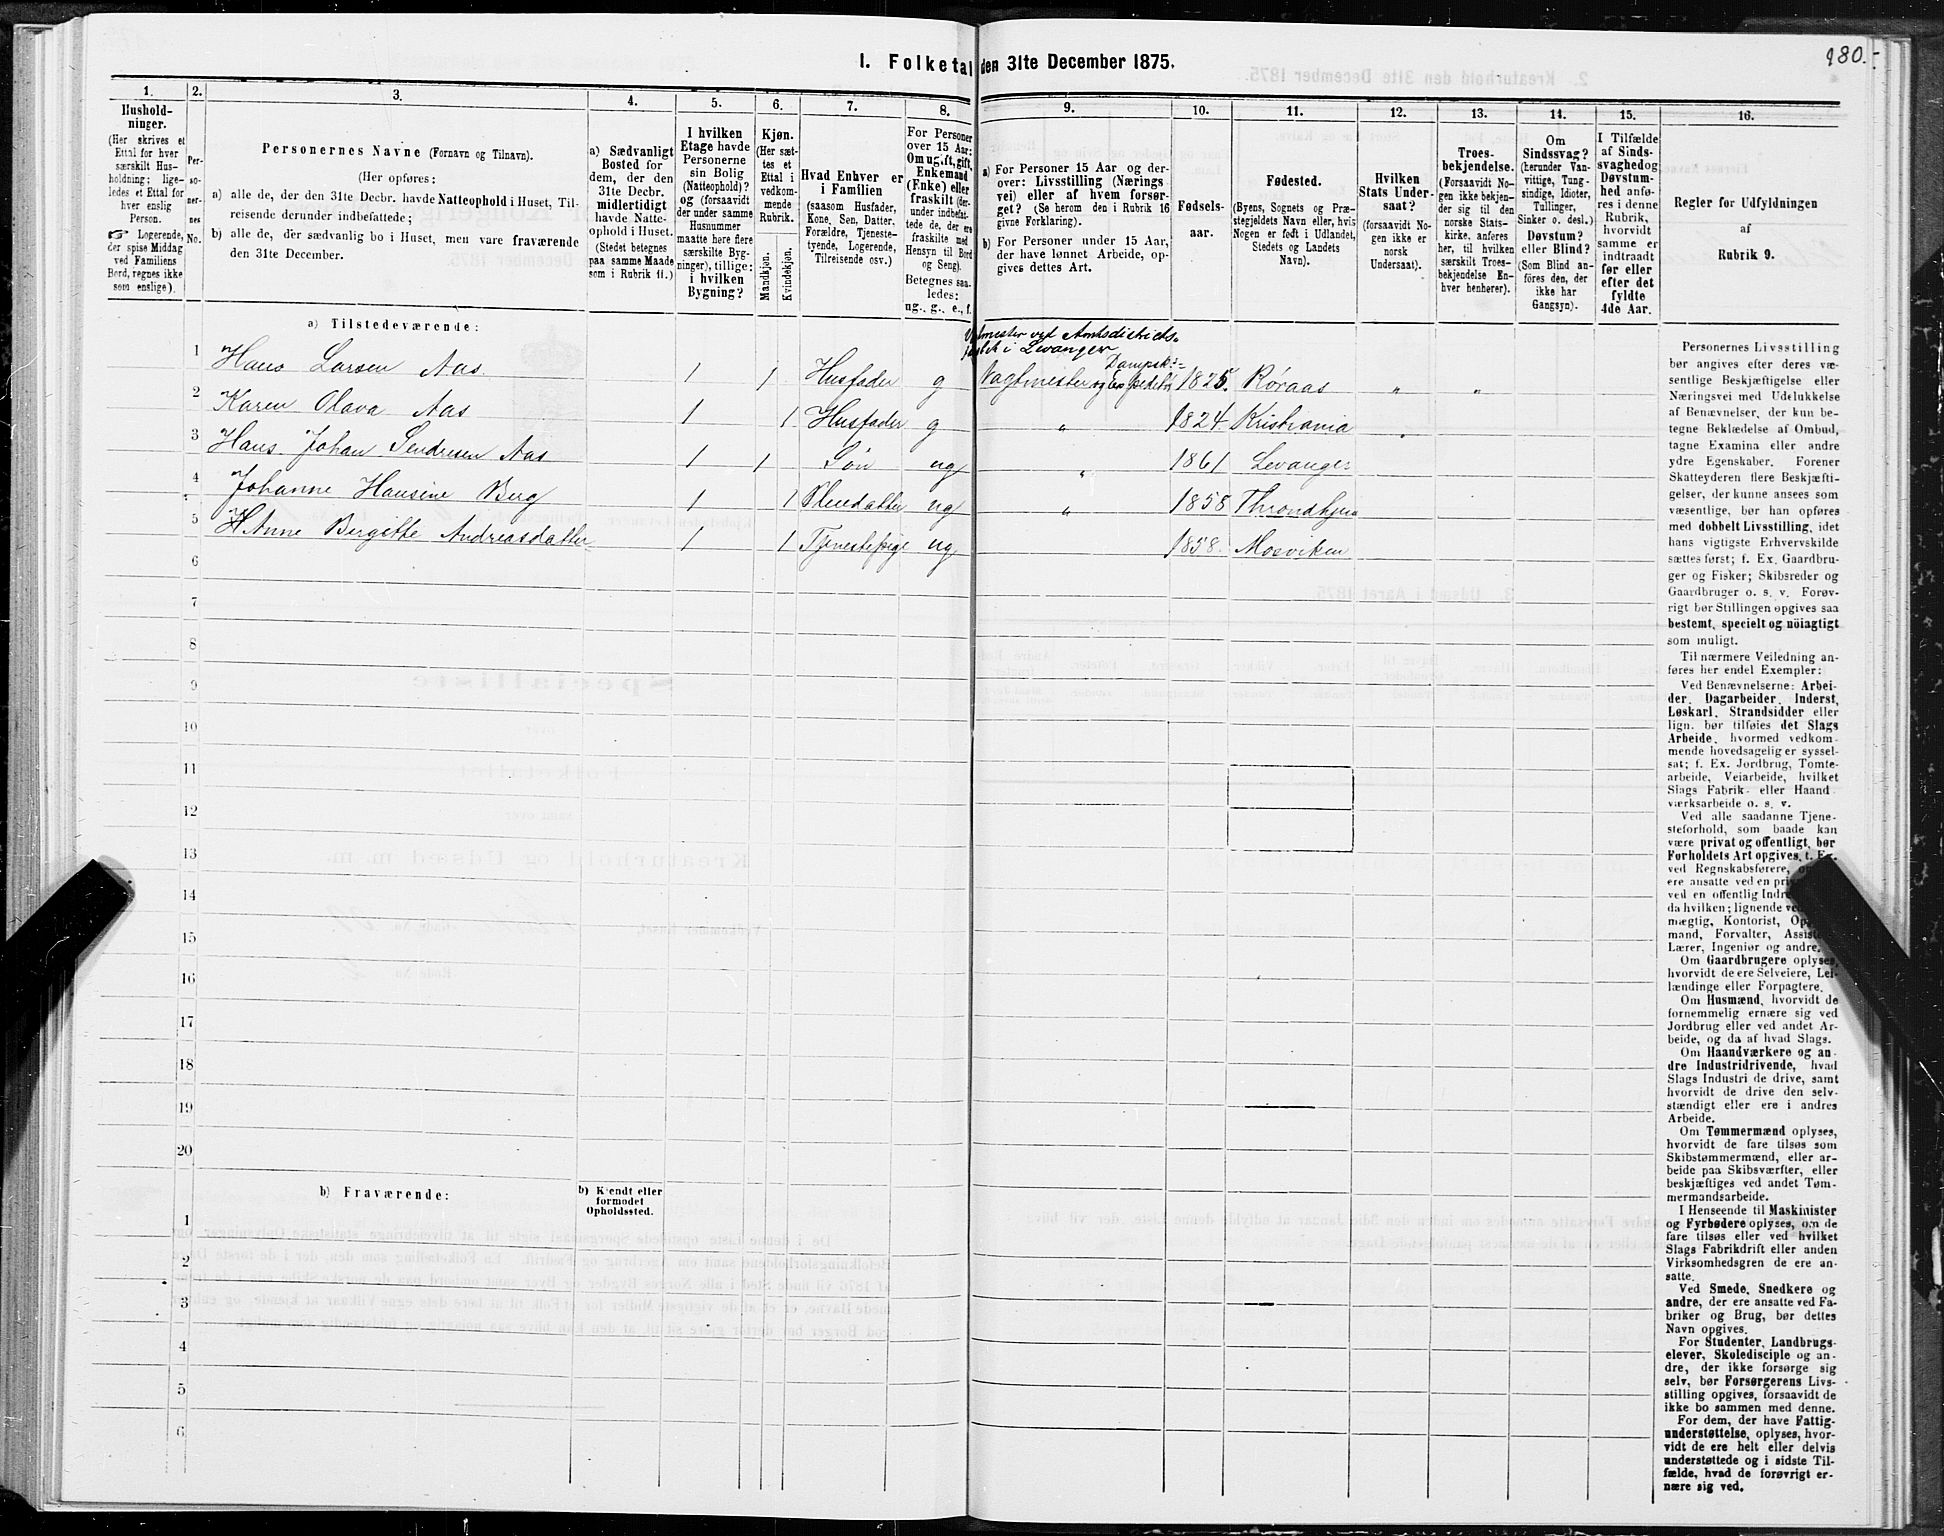 980.
I. Folketal den 31te December 1875.
1. 2. 3. 4. 5. 6. 7. 8. 9. 10. 11. 12. 13. 14. 15. 16.
Hushold-
ninger.
(Her skrives et
Ettal for hver
særskilt Hus-
holdning; lige-
ledes et Ettal for
hver enslig
Person.
Logerende,
der spise Middag
ved Familiens
Bord, regnes ikke
som enslige).
Per-
so-
ner-
nes
No.
Personernes Navne (Fornavn og Tilnavn).
(Her opføres:
a) alle de, der den 31te Decbr. havde Natteophold i Huset, Til-
reisende derunder indbefattede;
b) alle de, der sædvanlig bo i Huset, men vare fraværende
den 31te December.
a) Sædvanligt
Bosted for
dem, der den
31te Decbr.
midlertidigt
havde Natte-
ophold i Huset.
(Stedet betegnes
paa samme Maade
som i Rubrik 11.)
I hvilken
Etage havde
Personerne
sin Bolig
(Natteophold)?
og (forsaavidt
der under samme
Husnummer
maatte høre flere
særskilte Byg-
ninger), tillige:
i hvilken
Bygning?
Kjøn.
(Her sæt-
tes et
Ettal i
vedkom-
mende
Rubrik.
Mandkjøn.
Kvindekjøn.
Hvad Enhver er
i Familien
(saasom Husfader,
Kone, Søn, Datter,
Forældre, Tjeneste-
tyende, Logerende,
Tilreisende osv.)
For Personer
over 15 Aar:
Om ugift, gift,
Enkemand
(Enke) eller
fraskilt (der-
under indbefat-
tede de, der ere
fraskilte med
Hensyn til Bord
og Seng).
Betegnes saa-
ledes:
ug., g., e., f.
a) For Personer 15 Aar og der-
over: Livsstilling (Nærings
vei) eller af hvem forsør-
get? (Se herom den i Rubrik 16
givne Forklaring).
b) For Personer under 15 Aar,
der have lønnet Arbeide, op-
gives dettes Art.
Fødsels-
aar.
Fødested.
(Byens, Sognets og Præ-
stegjeldets Navn eller, hvis
Nogen er født i Udlandet,
Stedets og Landets
Navn).
Hvilken
Stats Under-
saat?
(forsaavidt No-
gen ikke er
norsk
Undersaat).
Troes-
bekjendelse.
(Forsaavidt No-
gen ikke bekjen-
der sig til den
norske Stats-
kirke, anføres
her, til hvilken
særskilt Troes-
bekjendelse En-
hver henhører).
Om
Sindssvag?
(herunder Van-
vittige, Tung-
sindige, Idioter,
Tullinger,
Sinker o. desl.)
Døvstum?
eller Blind?
(Som Blind an-
føres den, der
ikke har
Gangsyn).
I Tilfælde
af Sinds-
svaghed og
Døvstum-
hed anfø-
res i denne
Rubrik,
hvorvidt
samme er
indtraadt
før eller
efter det
fyldte
4de Aar.
Regler for Udfyldningen
af
Rubrik 9.
a) Tilstedeværende:
ved Amtsdistrikts-
i Levanger
1 Hans Larsen Aas 1 1 Husfader g Vagtmester og Dampsk: Expeditør 1825. Røraas " "
2 Karen Olava Aas 1 1 Husfader g " 1824. Kristiania "
3 Hans Johan Sendresen Aas 1 1 Søn ug " 1861 Levanger
4 Johanne Hansine Berg 1 1 Pleiedatter ug " 1858 Throndhjem
5 Anne Birgitte Andreasdatter 1 1 Tjenestepige ug 1858. Mosviken
6
7
8
9
10
11
12
13
14
15
16
17
18
19
20
b) Fraværende:
b) Kjendt eller
formodet
Opholdssted.
1
2
3
4
5
6
Personernes Livsstilling
bør angives efter deres væ-
sentlige Beskjæftigelse eller
Næringsvei med Udelukkelse
af Benævnelser, der kun be-
tegne Beklædelse af Ombud,
tagne Examina eller andre
ydre Egenskaber. Forener
Skatteyderen flere Beskjæfti-
gelser, der kunne ansees som
væsentlige, bør han opføres
med dobbelt Livsstilling, idet
hans vigtigste Erhvervskilde
sættes først; f. Ex. Gaardbru-
ger og Fisker; Skibsreder og
Gaardbruger o. s. v. Forøv-
rigt bør Stillingen opgives saa
bestemt, specielt og nöiagtigt
som muligt.
Til nærmere Veiledning an-
føres her endel Exempler:
Ved Benævnelserne: Arbei-
der, Dagarbeider, Inderst,
Løskarl, Strandsidder eller
lign. bør tilføies det Slags
Arbeide, hvormed vedkom-
mende hovedsagelig er syssel-
sat; f. Ex. Jordbrug, Tomte-
arbeide, Veiarbeide, hvilket
Slags Fabrik- eller Haand
værksarbeide o. s. v.
Ved alle saadanne Tjene-
steforhold, som baade kan
være privat og offentligt, bør
Forholdets Art opgives, t. Ex.
ved Regnskabsførere,
ere ansatte ved en
ved en offentlig
da hvilken; lignende
mægtig, Kontorist,
mand, Forvalter,
Lærer, Ingeniør og andre.
Om Gaardbrugere oplyses,
hvorvidt de ere Selveiere, Lei-
lændinge eller Forpagtere.
Om Husmænd, hvorvidt de
fornemmelig ernære sig ved
Jordbrug eller ved andet Ar-
beide, og da af hvad Slags.
Om Haandværkere og an-
dre Industridrivende, hvad
Slags Industri de drive, samt
hvorvidt de drive den selv-
stændigt eller ere i andres
Arbeide.
Om Tømmermænd oplyses,
hvorvidt de fare tilsøs som
Skibstømmermænd, eller ar-
beide paa Skibsværfter, eller
beskjæftiges ved andet Tøm-
mermandsarbeide.
I Henseende til Maskinister
og Fyrbødere oplyses, om de
fare tilsøs eller ved hvilket
Slags Fabrikdrift eller anden
Virksomhedsgren de ere an-
satte.
Ved Smede, Snedkere og
andre, der ere ansatte ved Fa-
briker og Brug, bør dettes
Navn opgives.
For Studenter, Landbrugs-
elever, Skoledisciple og an-
dre, der ikke forsørge sig
selv, bør Forsørgerens Livs-
stilling opgives, forsaavidt de
ikke bo sammen med denne.
For dem, der have Fattig-
understøttelse, oplyses, hvor-
vidt de ere helt eller delvis
understøttede og i sidste Til-
fælde, hvad de forøvrigt er-
nære sig ved.